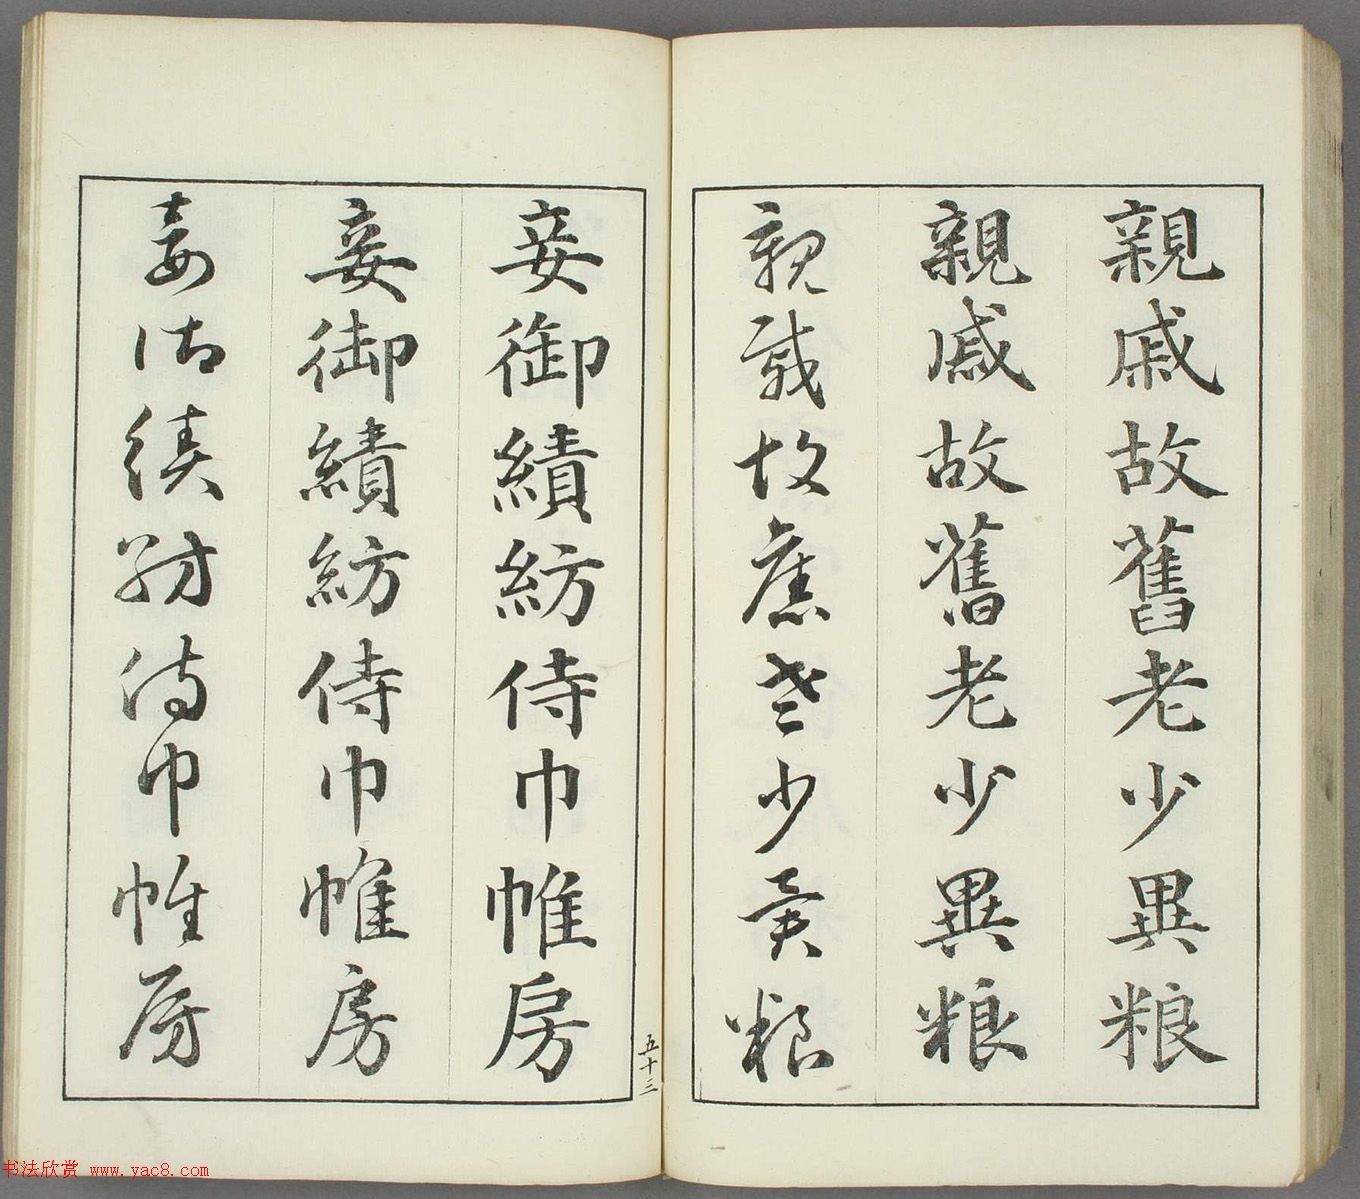 親戚故舊老少異粮
親戚故舊老少異粮
親戚故舊老少異粮
五十三
妾御績紡侍巾帷房
妾御績紡侍巾帷房
妾御績紡侍巾帷房
书法欣赏 www.yac8.com